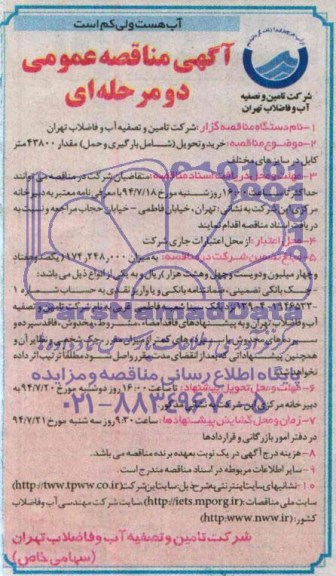 آب هست ولی کم است
آگهی مناقصه عمومی
دو مرحله‌ای
شرکت تامین و تصفیه
آب و فاضلاب تهران
۱-نام دستگاه مناقصه گزار: شرکت تامین و تصفیه آب و فاضلاب تهران
۲-موضوع مناقصه: خرید و تحویل (شامل بارگیری و حمل) مقدار ۴۳۸۰۰ متر
کابل در سایزهای مختلف
۳-مهلت و محل دریافت اسناد مناقصه: متقاضیان شرکت در مناقصه می توانند
حداکثر تا ساعت ۱۶:۰۰ روز شنبه مورخ ۹۴/۷/۱۸ با معرفی نامه معتبر به دبیرخانه
مرکزی این شرکت به نشانی: تهران، خیابان فاطمی - خیابان حجاب مراجعه و نسبت به
دریافت اسناد مناقصه اقدام نمایند
۴-محل اعتبار: از محل اعتبارات جاری شرکت
۵-مبلغ تضمین شرکت در مناقصه: به میزان ۱۷۴,۲۴۸,۰۰۰ (یکصد و هفتاد
و چهار میلیون و دویست و چهل و هشت هزار) ریال و به یکی از انواع ذیل می باشد:
چک بانکی تضمینی، ضمانتنامه بانکی و یا واریز نقدی به حساب شماره ۱
بانک سینا شعبه فاطمی غربی به نام شرکت تامین و تصفیه
آب و فاضلاب تهران و به پیشنهادهای فاقد امضاء، مشروط، مخدوش، فاقد سپرده و
سپرده‌های مخدوش یا سپرده‌های کمتر از میزان مقرر، چک شخصی و نظایر آن و
همچنین پیشنهاداتی که بعد از انقضای مدت مقرر واصل شود مطلقا ترتیب اثر داده
نخواهد شد
۶-مهلت و محل تحویل پیشنهاد: تا ساعت ۱۶:۰۰ روز دوشنبه مورخ ۹۴/۷/۲۰ به
دبیرخانه مرکزی این شرکت به نشانی مذکور
۷-زمان و محل گشایش پیشنهادها: ساعت ۹:۳۰ روز سه شنبه مورخ ۹۴/۷/۲۱
در دفتر امور بازرگانی و قراردادها
۸-هزینه درج آگهی در یک نوبت بعهده برنده مناقصه می باشد.
۹-سایر اطلاعات مربوطه در اسناد مناقصه مندرج است.
۱۰-نشانیهای سایت اینترنتی به شرح ذیل: سایت این شرکت (http://tww.tpww.co.ir)
سایت ملی مناقصات: (http://iets.mporg.ir) سایت شرکت مهندسی آب و فاضلاب
کشور: (http:www.nww.ir)
شرکت تامین و تصفیه آب و فاضلاب تهران
(سهامی خاص)
ParsNamadData
پایگاه اطلاع رسانی مناقصه و مزایده
۰۲۱-۸۸۳۴۹۶۷۰-۵